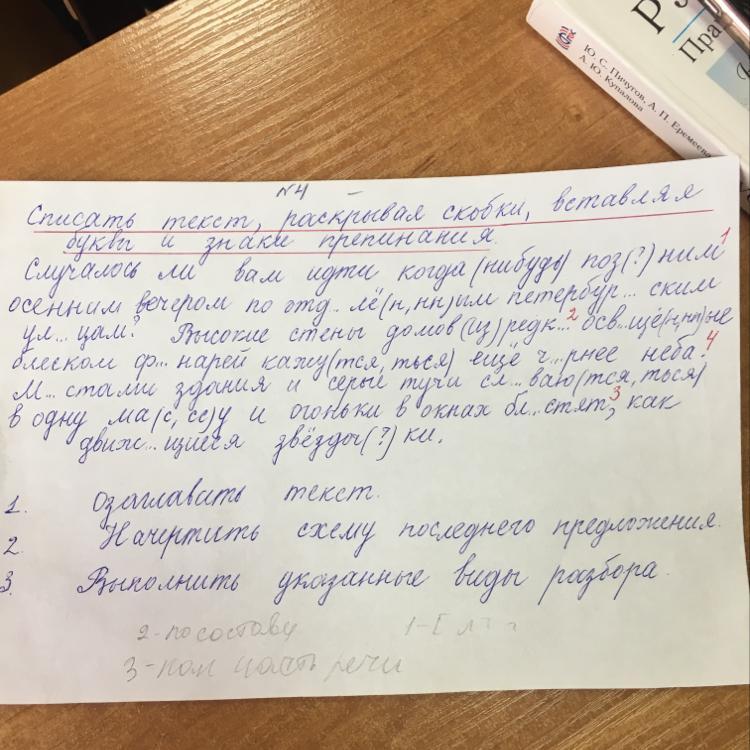 РУ
Пра
Ю. С. Пичугов, А. П. Еремеева
А. Ю. Купалова
№4
Списать текст, раскрывая скобки, вставляя
буквы и знаки препинания.
Случалось ли вам идти когда(нибудь) поз(?)ним 1
осенним вечером по отд..лё(н,нн)ым петербур...ским
ул...цам? Высокие стены домов (из)редк...2 осв...щё(н,нн)ые
блеском ф...нарей кажу(тся, ться) ещё ч...рнее неба.4
М...стами здания и серые тучи сл...ваю(тся, ться)
в одну ма(с, сс)у и огоньки в окнах бл..стят,3 как
движ...щиеся звёздоч(?)ки.
1. Озаглавить текст.
2. Начертить схему последнего предложения.
3. Выполнить указанные виды разбора.
2-по составу 1-[
3-как часть речи